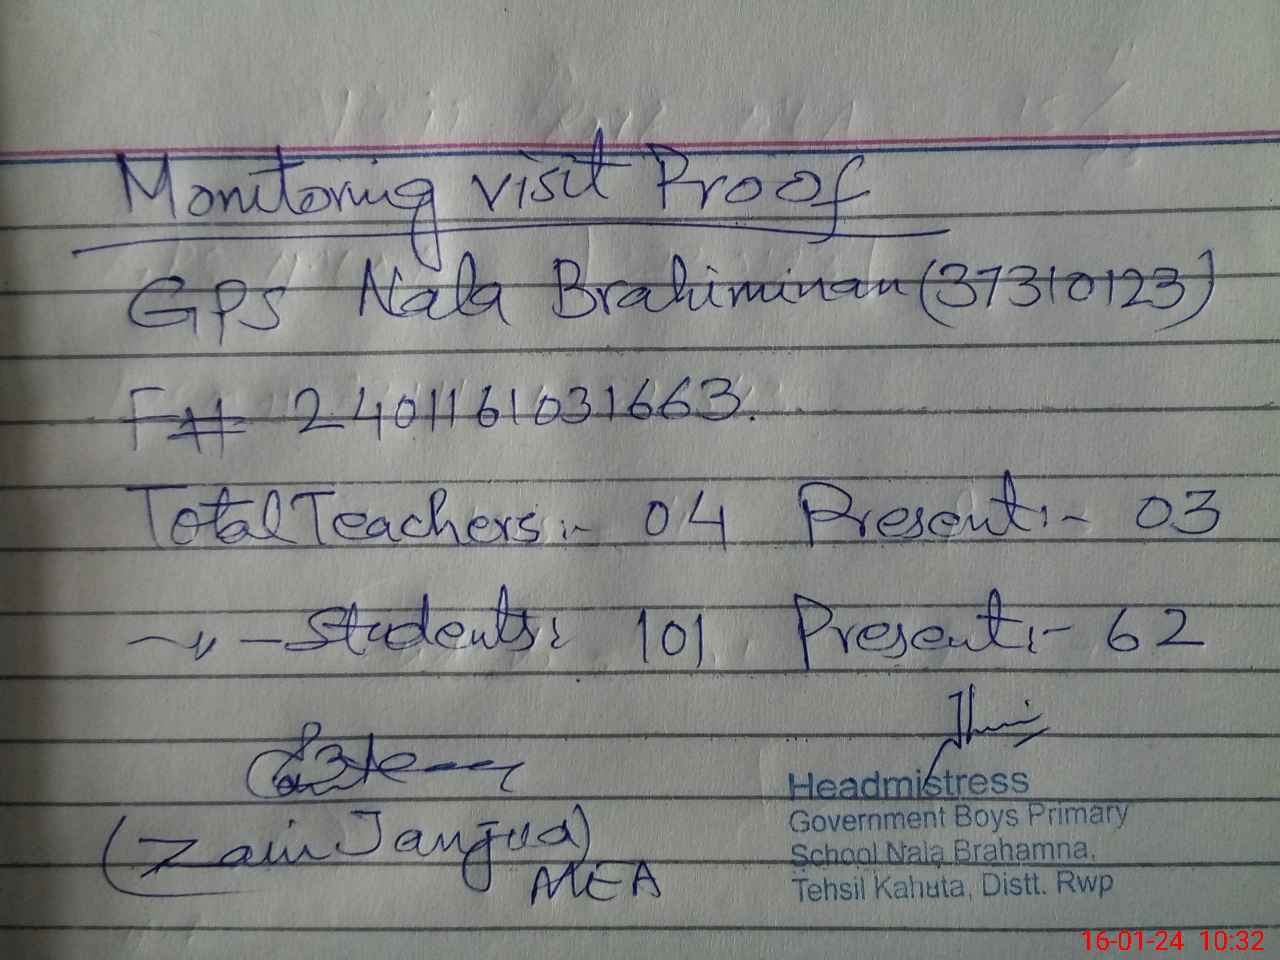 Monitoring visit Proof
GPS Nala Brahiminan (37310123)
F# 240116031663.
Total Teachers:- 04 Present:- 03
~ 〃 - Students: 101 Present:- 62
(Zain Janjua)
MEA
Headmistress
Government Boys Primary
School Nala Brahamna.
Tehsil Kahuta, Distt. Rwp
16-01-24 10:32